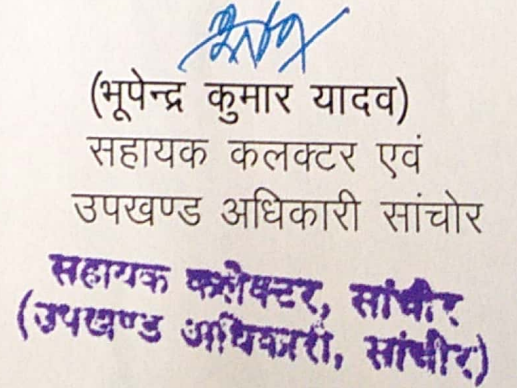 (भूपेन्द्र कुमार यादव)
सहायक कलक्टर एवं
उपखण्ड अधिकारी सांचोर
सहायक कलेक्टर, सांचौर
(उपखण्ड अधिकारी, सांचौर)